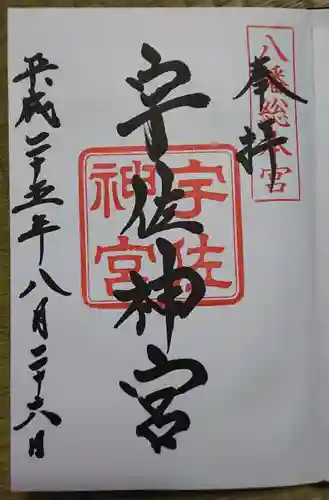 八幡総本宮
奉拝
宇佐神宮
宇佐
神宮
平成二十五年八月二十六日